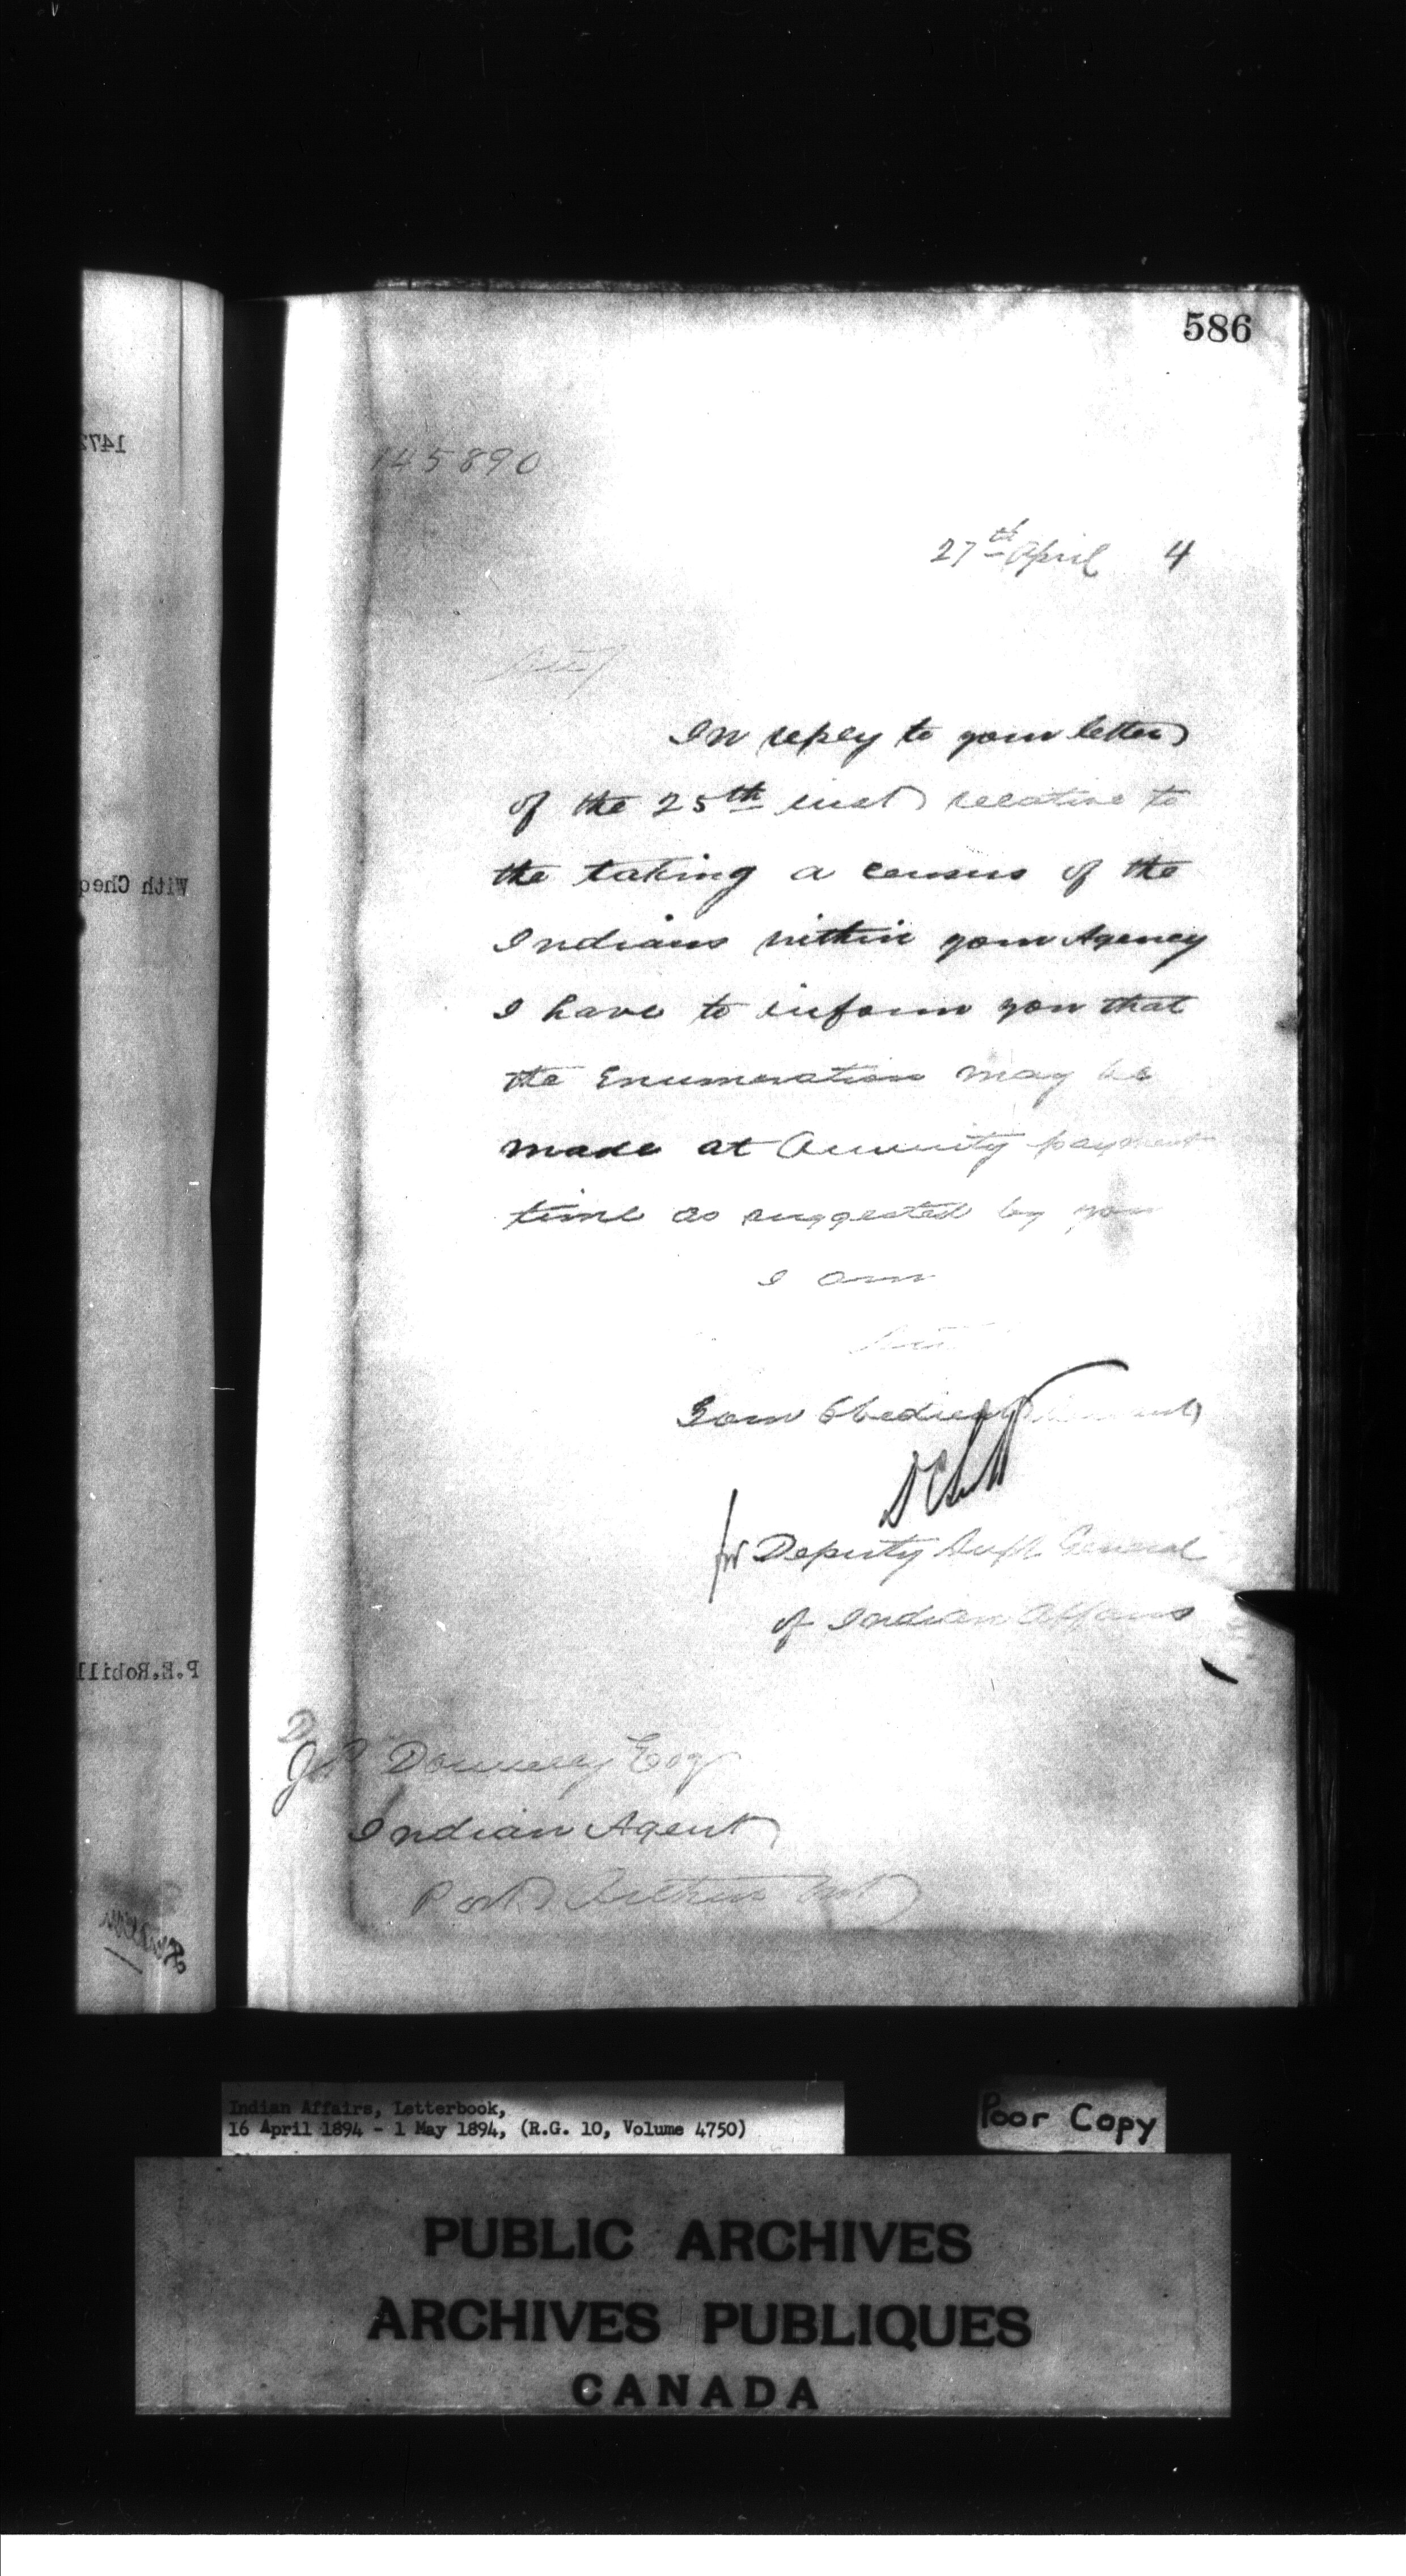 586
145890
27th April 4
Sir,
In reply to your letter
of the 25th inst relative to
the taking a census of the
Indians within your Agency
I have to inform you that
the Enumeration may be
made at Annuity payment
time as suggested by you
I am
Sir
Your Obedient Servant,
for Deputy Supt. General
of Indian Affairs
J P Donnelly Esq
Indian Agent
Port Arthur Ont
1472
With Cheq
P.E.Robill
Indian Affairs, Letterbook,
16 April 1894 - 1 May 1894, (R.G. 10, Volume 4750)
Poor Copy
PUBLIC ARCHIVES
ARCHIVES PUBLIQUES
CANADA